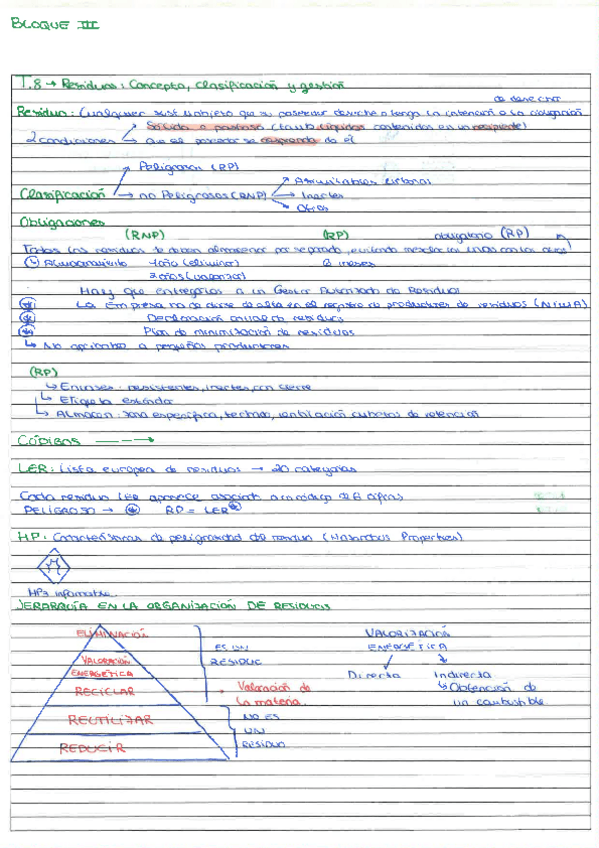 BLOQUE III
T.8 → Residuos: Concepto, clasificación y gestión
de desechar
Residuo: Cualquier sust u objeto que su poseedor deseche o tenga la intención o la obligación
2 condiciones → Sólido o pastoso (tamb. líquidos contenidos en un recipiente)
→ que el poseedor se desprenda de él
Peligrosos (RP)
Clasificación → no Peligrosos (RNP) → Asimilables urbanos
→ Inertes
→ Otros
Obligaciones
(RNP) (RP) obligatorio (RP)
Todos los residuos se deben almacenar por separado, evitando mezclar los unos con los otros
↳ Almacenamiento 1 año (eliminar) 6 meses
2 años (valorizar)
Hay que entregarlos a un Gestor Autorizado de Residuos
La Empresa ha de darse de alta en el registro de productores de residuos (NIMA)
Declaración anual de residuos
Plan de minimización de residuos
↳ No aplicables a pequeños productores
(RP)
↳ Envases: resistentes, inertes, con cierre
↳ Etiqueta estándar
↳ Almacén: zona específica, techado, ventilación cubetos de retención
CÓDIGOS ---→
LER: Lista europea de residuos → 20 categorías
Cada residuo LER aparece asociado a un código de 6 cifras
PELIGROSO → * RP = LER*
HP: Características de peligrosidad del residuo (Hazardous Properties)
HP3 inflamable
JERARQUÍA EN LA ORGANIZACIÓN DE RESIDUOS
ELIMINACIÓN
VALORACIÓN ENERGÉTICA
RECICLAR
REUTILIZAR
REDUCIR
ES UN
RESIDUO
→ Valoración de
la materia.
NO ES
UN
RESIDUO
VALORIZACIÓN
ENERGÉTICA
Directa Indirecta
↳ Obtención de
un combustible